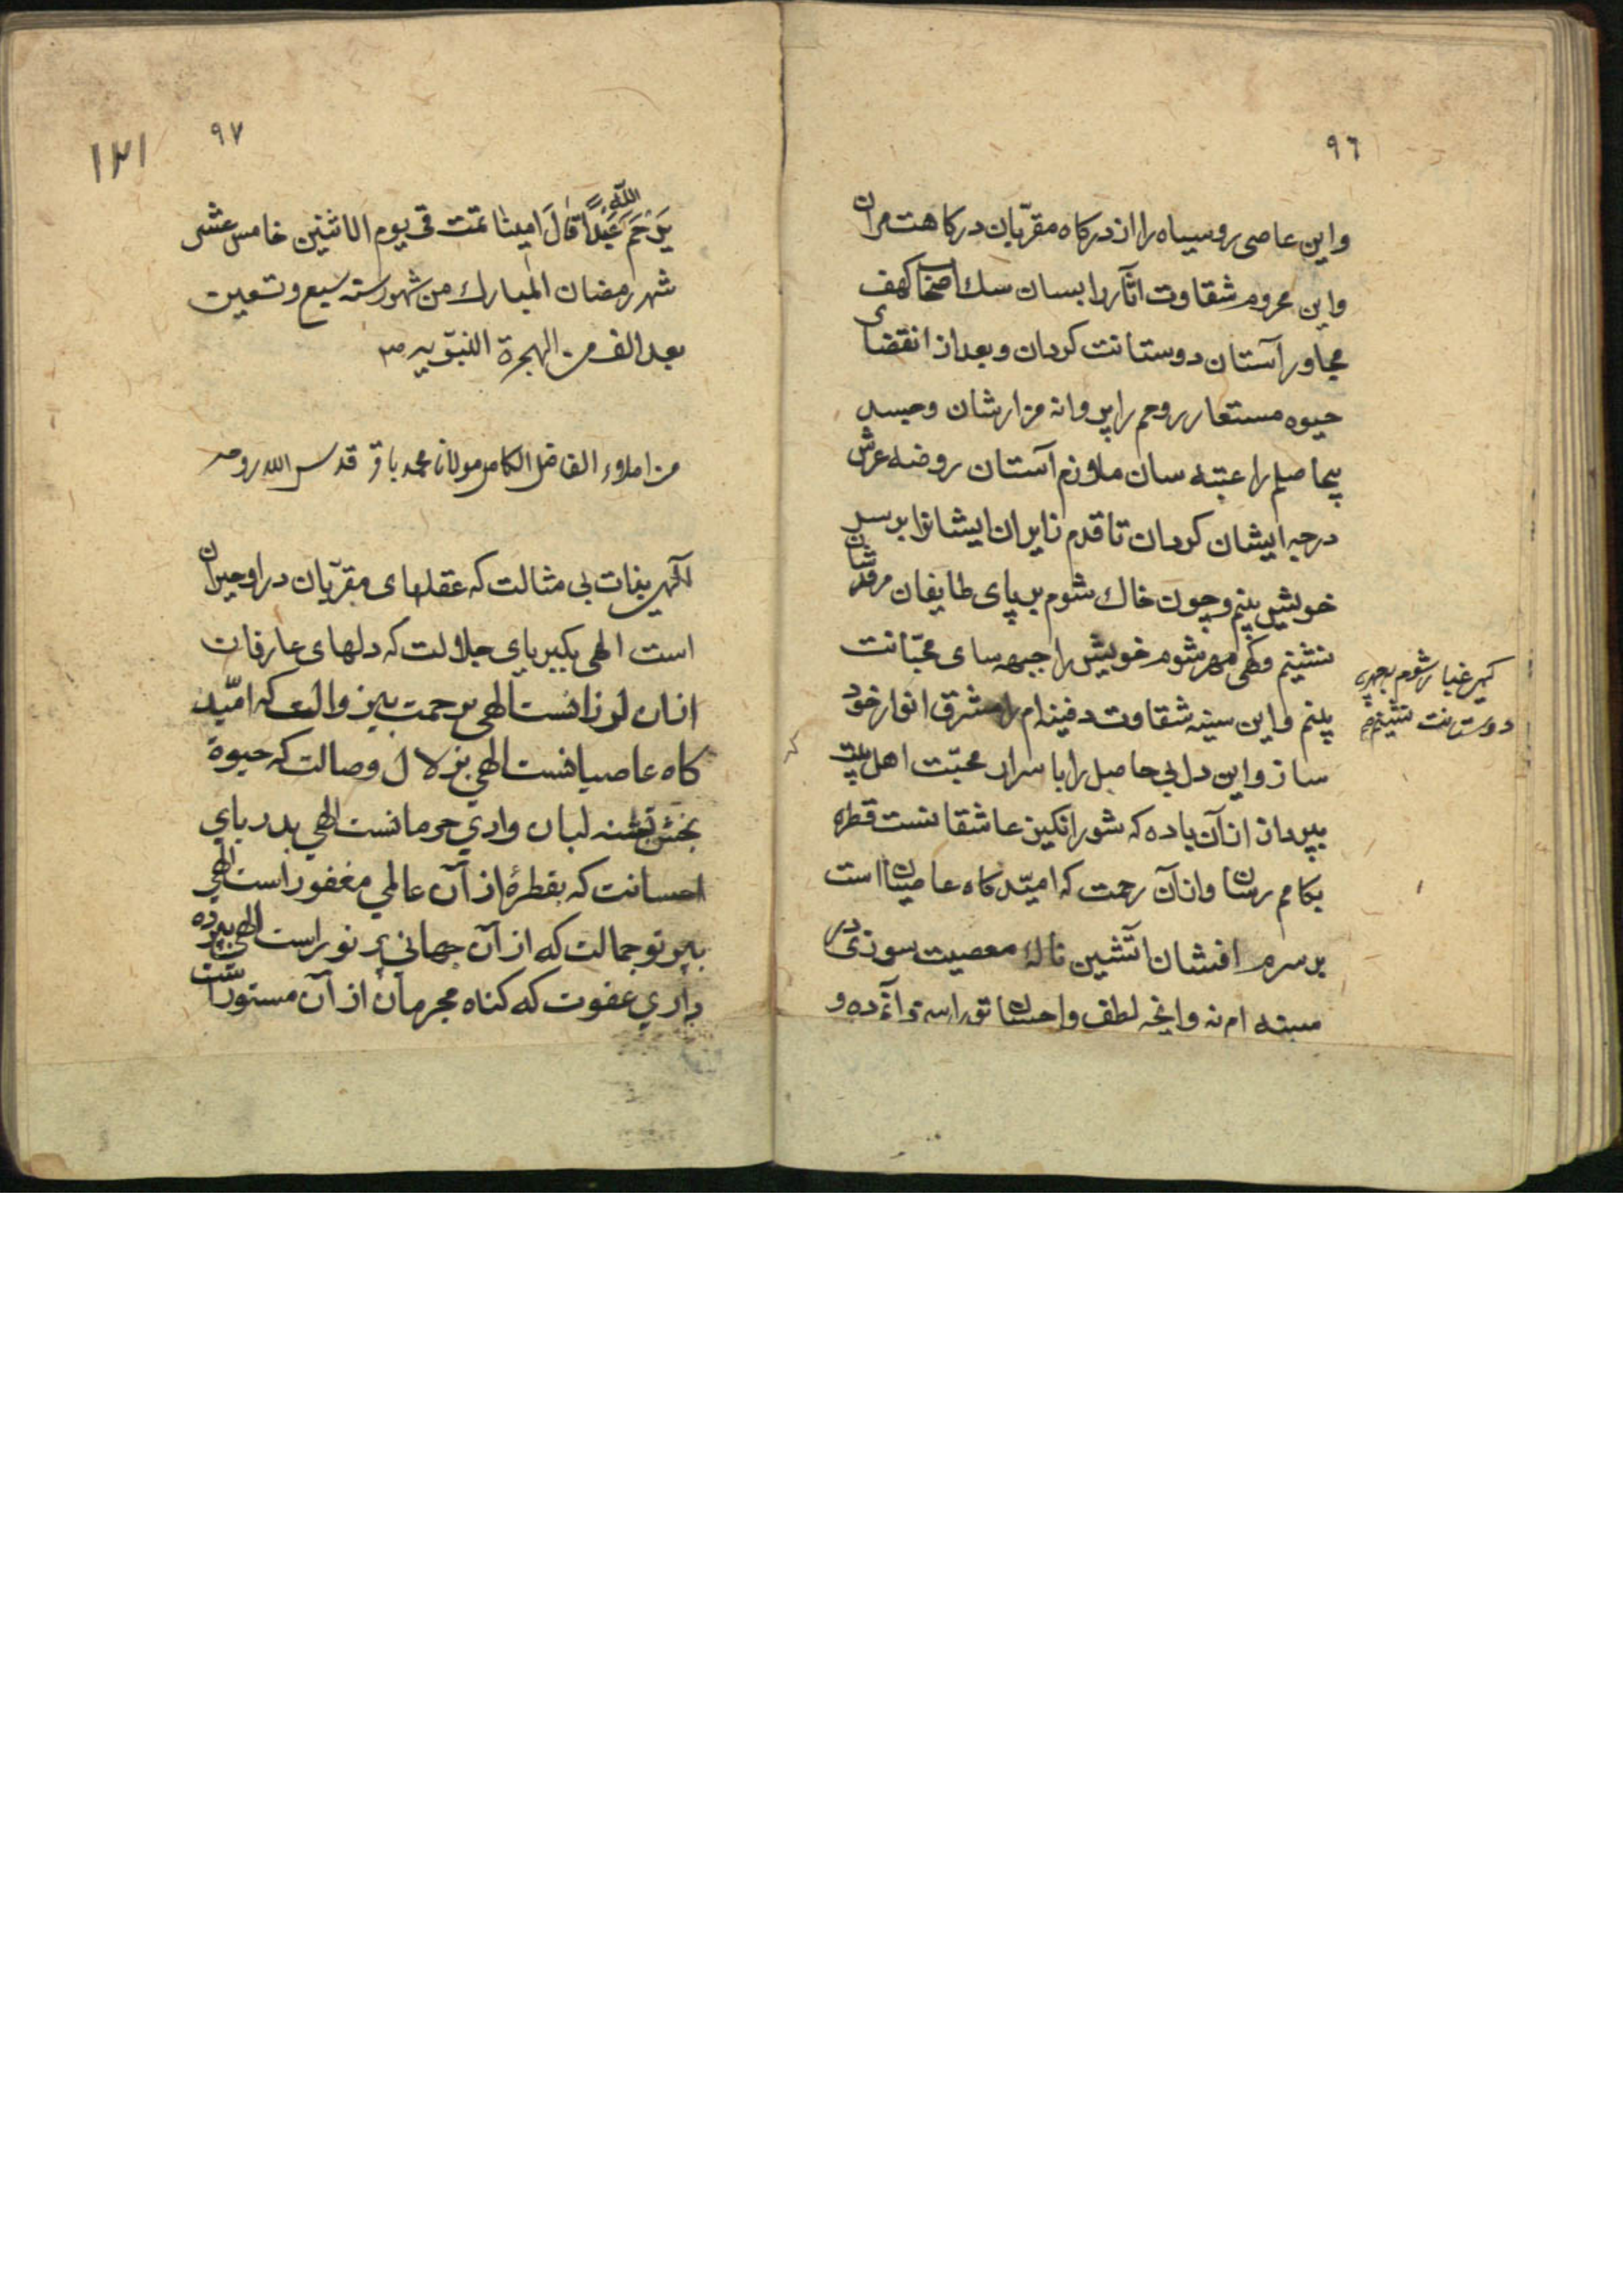 ٩٦
واین عاصی روسیاه را از درکاه مقرّبان درکاهت مران
واین محروم شقاوت اثار را بسان سك اصحاب کهف
مجاور آستان دوستانت کردان وبعد از انقضای
حیوه مستعار روحم را پروانه مزارشان وجسد
بیحاصلم را عتبه سان ملازم آستان روضه عرش
درجه ایشان کردان تا قدم زایران ایشانرا بر سر
خویش بینم وچون خاك شوم بر پای طایفان مرقدشان
نشینم وکهی مهر شوم خویش را جبهه سای محبّانت
کهی غبار شوم بر چهره
دوستانت نشینم
بینم واین سینه شقاوت دفینه ام را مشرق انوار خود
ساز واین دل بی حاصل را با سرار محبّت اهل بیت
بپرداز از آن باده که شور انکیز عاشقانست قطره
بکامم رسان وازآن رحمت که امیّدکاه عاصیان است
بر سرم افشان آتشین نالهٔ معصیت سوزی در
سینه ام نه وانچه لطف واحسان تو راست آنم ده و
٩٧
١٢١
یَرْحَمُ اللّٰهُ عَبْداً قالَ امینا تمّت فی یوم الاثنین خامس عشر
شهر رمضان المبارك من شهور سنه سبع وتسعین
بعد الف من الهجرة النبوّیه
من املاء الفاضل الکامل مولانا محمد باقر قدس الله روحه
الٓهی بذات بی مثالت که عقلهای مقرّبان در او حیران
است الهی بکبریای جلالت که دلهای عارفان
ازان لرزانست الهی برحمت بیزوالت که امّید
کاه عاصیانست الهی بزلال وصالت که حیوة
بخش تشنه لبان وادي حرمانست الهي بدریاي
احسانت که بقطرۀ از آن عالمي مغفور است الهي
بپرتو جمالت که از آن جهاني پر نور است الهي بپرده
داري عفوت که کناه مجرمان از آن مستور است